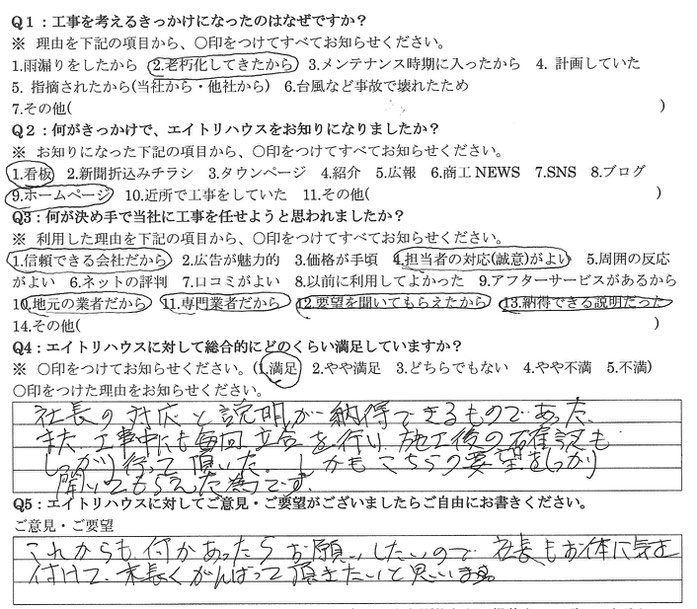 Q1：工事を考えるきっかけになったのはなぜですか？
※ 理由を下記の項目から、〇印をつけてすべてお知らせください。
1.雨漏りをしたから 2.老朽化してきたから 3.メンテナンス時期に入ったから 4. 計画していた
5. 指摘されたから(当社から・他社から) 6.台風など事故で壊れたため
7.その他( )
Q2：何がきっかけで、エイトリハウスをお知りになりましたか？
※ お知りになった下記の項目から、〇印をつけてすべてお知らせください。
1.看板 2.新聞折込みチラシ 3.タウンページ 4.紹介 5.広報 6.商工 NEWS 7.SNS 8.ブログ
9.ホームページ 10.近所で工事をしていた 11.その他( )
Q3：何が決め手で当社に工事を任せようと思われましたか？
※ 利用した理由を下記の項目から、〇印をつけてすべてお知らせください。
1.信頼できる会社だから 2.広告が魅力的 3.価格が手頃 4.担当者の対応(誠意)がよい 5.周囲の反応
がよい 6.ネットの評判 7.口コミがよい 8.以前に利用してよかった 9.アフターサービスがあるから
10.地元の業者だから 11.専門業者だから 12.要望を聞いてもらえたから 13.納得できる説明だった
14.その他( )
Q4：エイトリハウスに対して総合的にどのくらい満足していますか？
※ 〇印をつけてお知らせください。(1.満足 2.やや満足 3.どちらでもない 4.やや不満 5.不満)
〇印をつけた理由をお知らせください。
社長の対応と説明が納得できるものであった。
また、工事中にも毎回立会を行い、施工後の確認も
しっかり行って頂いた。しかもこちらの要望をしっかり
聞いてもらえた為です。
Q5：エイトリハウスに対してご意見・ご要望がございましたらご自由にお書きください。
ご意見・ご要望
これからも何かあったらお願いしたいので、社長もお体に気を
付けて、末長くがんばって頂きたいと思います。